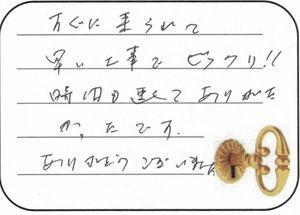 すぐに来られて
早い工事でビックリ!!
時間も早くてありがた
かったです.
ありがとうございました